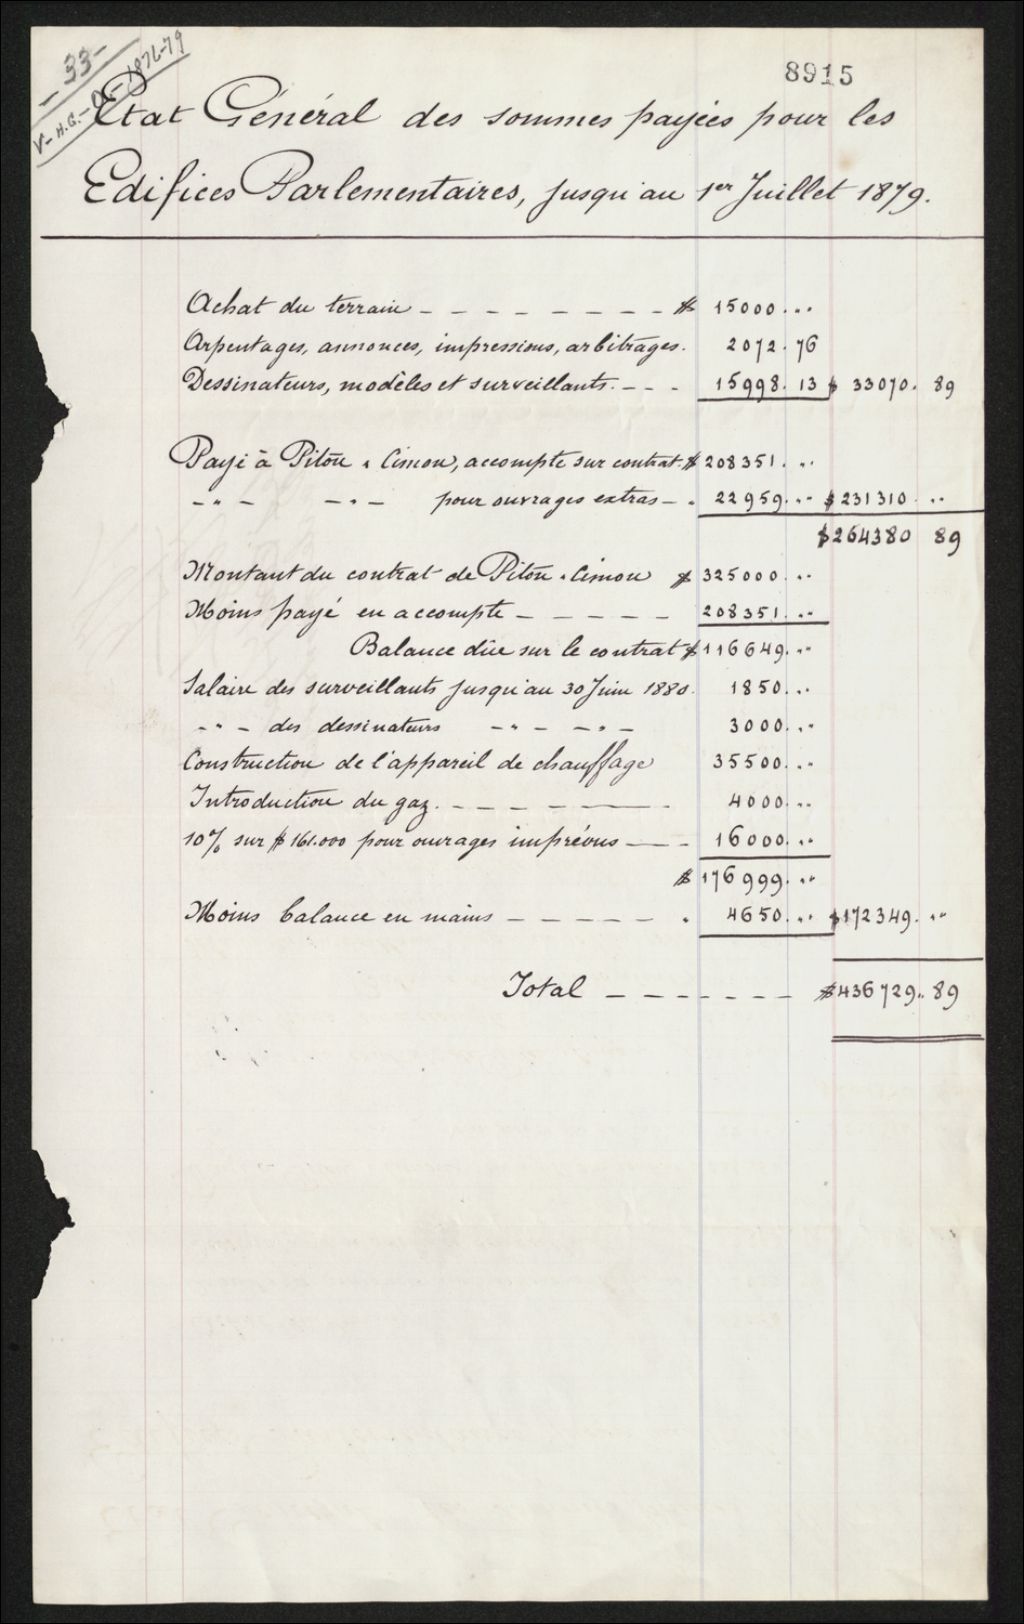 - 33 -
V-H.G.-Q. 1876-79
8915
Etat Général des sommes payées pour les
Edifices Parlementaires, jusqu'au 1er Juillet 1879.
Achat du terrain - - - - - - - - $ 15000. ..
Arpentages, annonces, impressions, arbitrages. 2072. 76
Dessinateurs, modèles et surveillants. - - - 15998. 13 $ 33070. 89
Payé à Piton & Cimon, accompte sur contrat. $ 208351. ..
- " - - " - pour ouvrages extras - . 22959. .. $ 231310 ..
$ 264380 89
Montant du contrat de Piton & Cimon $ 325000. ..
Moins payé en accompte - - - - - 208351. ..
Balance dûe sur le contrat $ 116649. ..
Salaire des surveillants jusqu'au 30 Juin 1880. 1850. ..
- " - des dessinateurs - " - - " - 3000. ..
Construction de l'appareil de chauffage 35500. ..
Introduction du gaz. - - - - - - 4000. ..
10% sur $ 161.000 pour ouvrages imprévus - - - 16000. ..
$ 176999. ..
Moins balance en mains - - - - - . 4650. .. $ 172349. ..
Total - - - - - - - $ 436729. 89